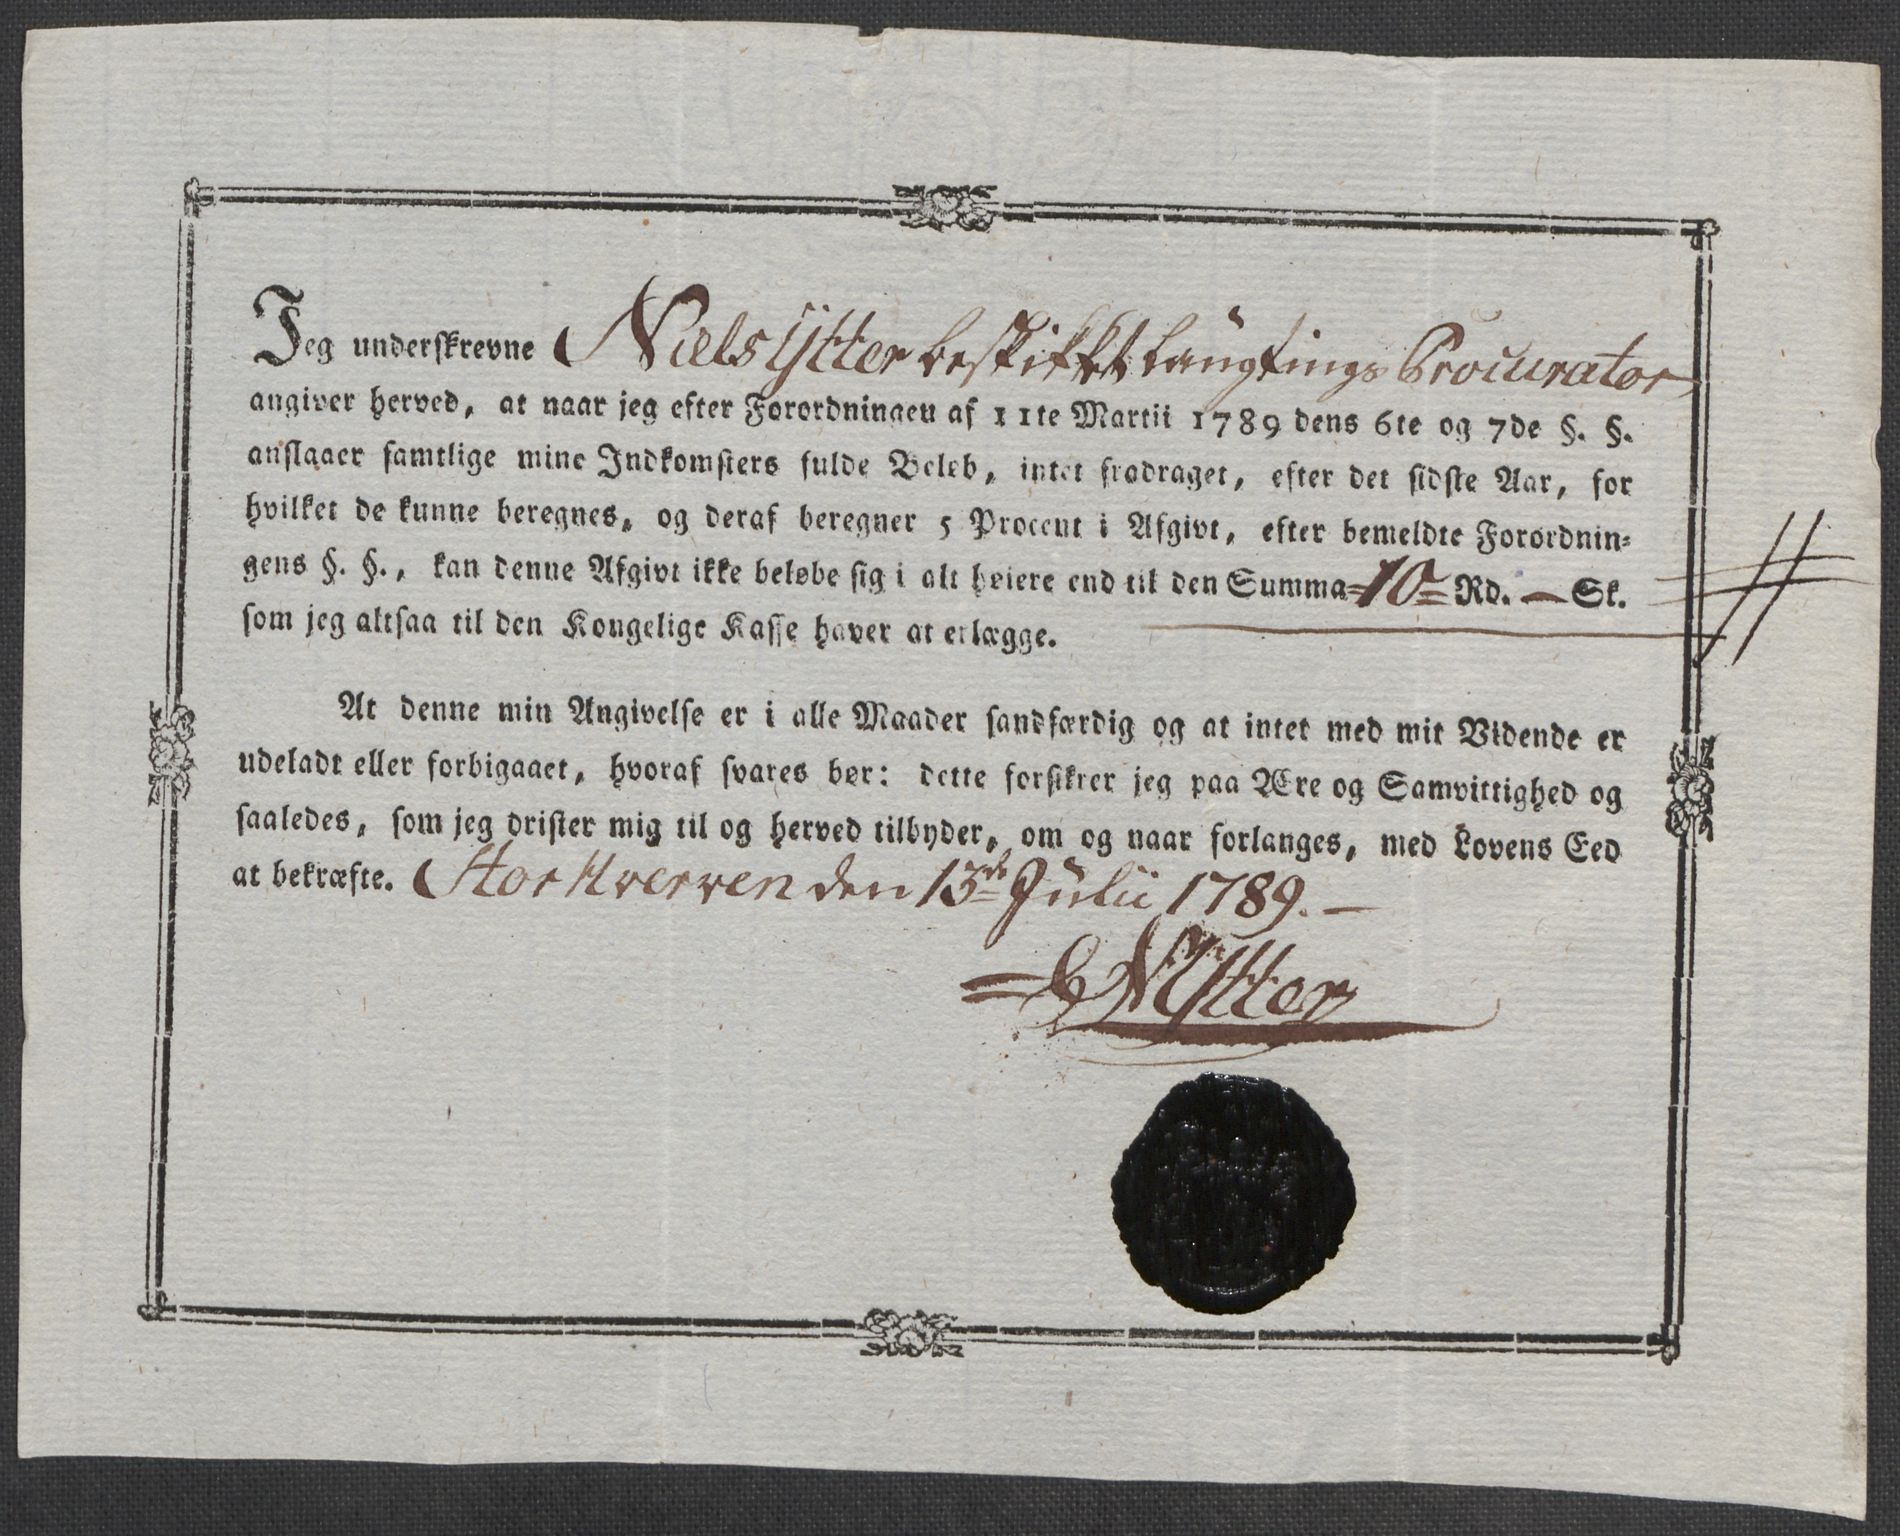 Jeg underskrevne Niels Ytter beskikket Laugtings Procurator
angiver herved, at naar jeg efter Forordningen af 11te Martii 1789 dens 6te og 7de §. §.
anslaaer samtlige mine Indkomsters fulde Beløb, intet fradraget, efter det sidste Aar, for
hvilket de kunne beregnes, og deraf beregner 5 Procent i Afgivt, efter bemeldte Forordnin=
gens §. §., kan denne Afgivt ikke beløbe sig i alt høiere end til den Summa =10= Rd. — Sk.
som jeg altsaa til den Kongelige Kasse haver at erlægge.
At denne min Angivelse er i alle Maader sandfærdig og at intet med mit Vidende er
udeladt eller forbigaaet, hvoraf svares bør: dette forsikrer jeg paa Ære og Samvittighed og
saaledes, som jeg drister mig til og herved tilbyder, om og naar forlanges, med Lovens Eed
at bekræfte. Stor Hverven den 13de Julii 1789. —
NYtter